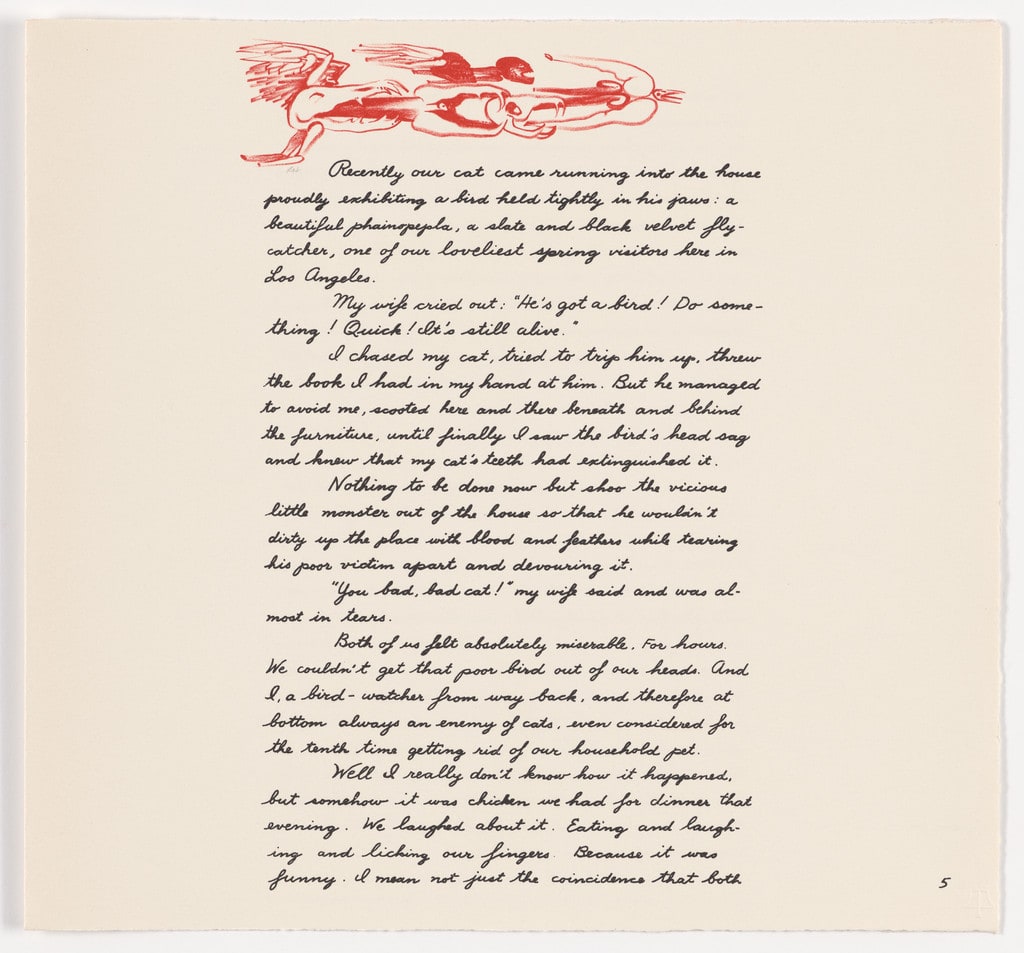 Recently our cat came running into the house
proudly exhibiting a bird held tightly in his jaws: a
beautiful phainopepla, a slate and black velvet fly-
catcher, one of our loveliest spring visitors here in
Los Angeles.
My wife cried out: "He's got a bird! Do some-
thing! Quick! It's still alive."
I chased my cat, tried to trip him up, threw
the book I had in my hand at him. But he managed
to avoid me, scooted here and there beneath and behind
the furniture, until finally I saw the bird's head sag
and knew that my cat's teeth had extinguished it.
Nothing to be done now but shoo the vicious
little monster out of the house so that he wouldn't
dirty up the place with blood and feathers while tearing
his poor victim apart and devouring it.
"You bad, bad cat!" my wife said and was al-
most in tears.
Both of us felt absolutely miserable. For hours.
We couldn't get that poor bird out of our heads. And
I, a bird-watcher from way back, and therefore at
bottom always an enemy of cats, even considered for
the tenth time getting rid of our household pet.
Well I really don't know how it happened,
but somehow it was chicken we had for dinner that
evening. We laughed about it. Eating and laugh-
ing and licking our fingers. Because it was
funny. I mean not just the coincidence that both
5